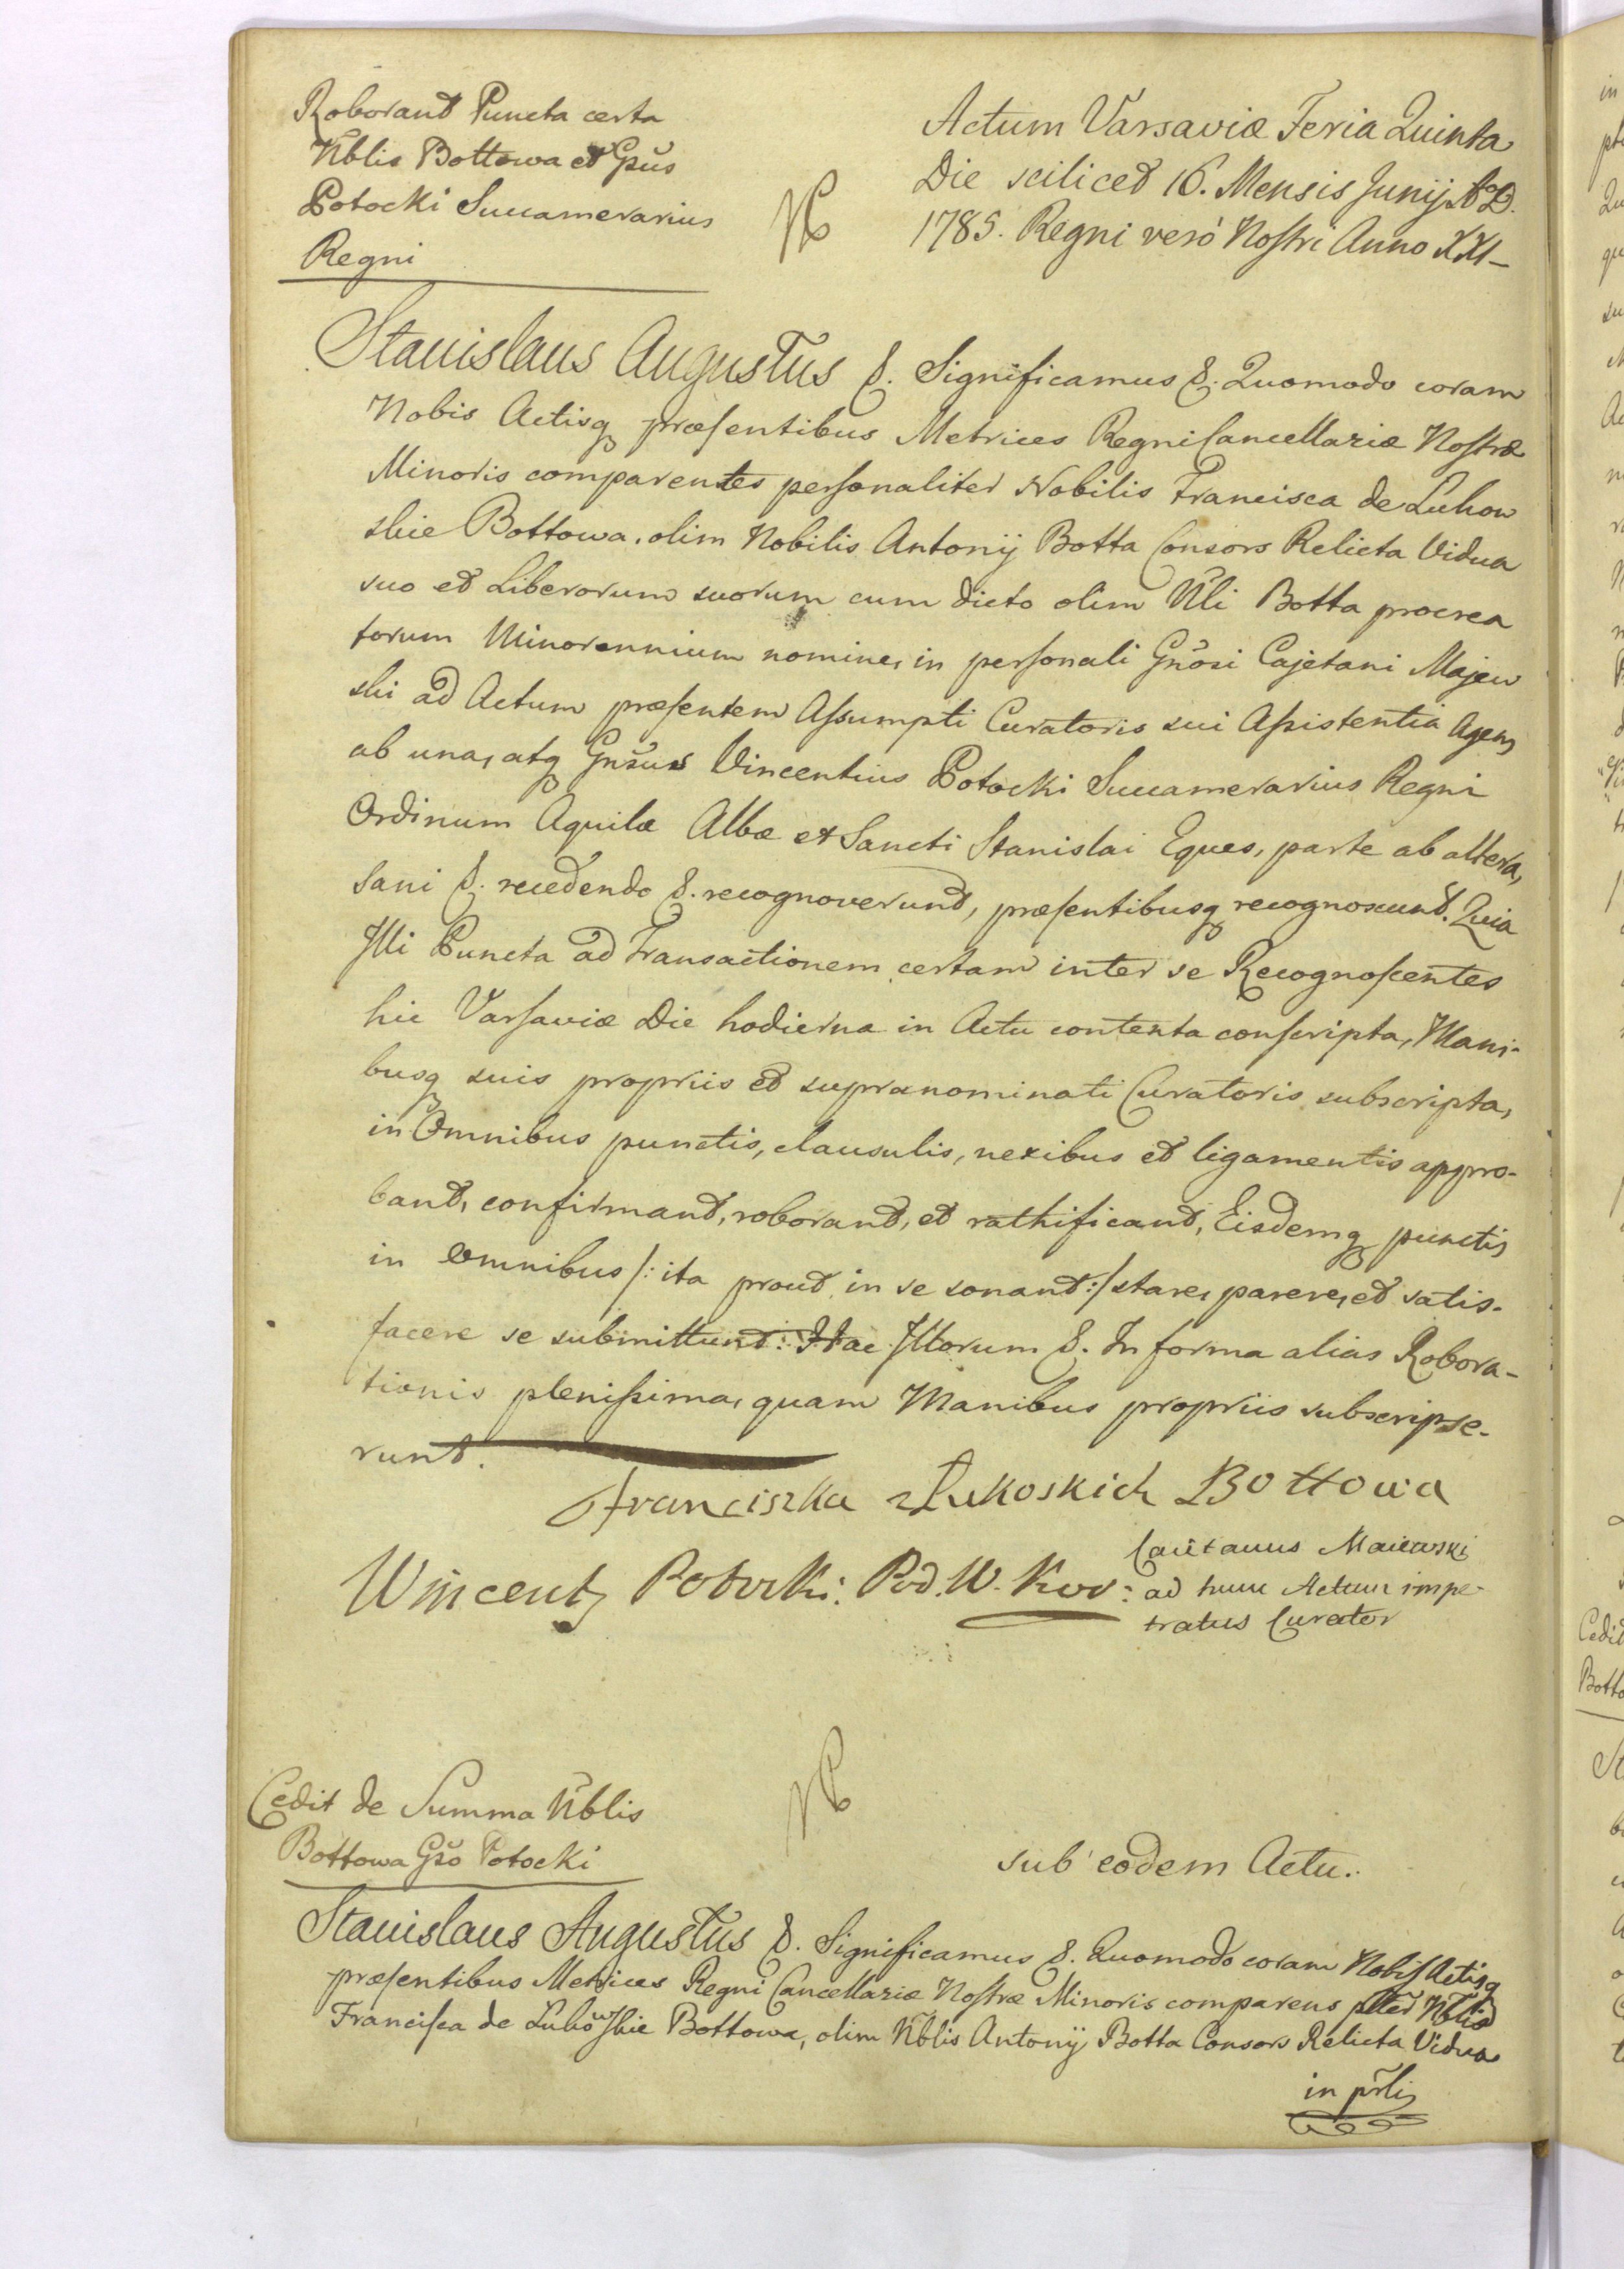 Roborant Puncta certa
Nblis Bottowa et Gsus
Potocki Succamerarius
Regni
Actum Varsaviæ Feria Quinta
Die scilicet 16. Mensis Junij A̅o D.
1785. Regni vero Nostri Anno XXI
Stanislaus Augustus &. Significamus &. Quomodo coram
Nobis Actisq præsentibus Metrices Regni Cancellariæ Nostræ
Minoris comparentes personaliter Nobilis Francisca de Lukow
skie Bottowa, olim Nobilis Antonij Botta Consors Relicta Vidua
suo et Liberorum suorum cum dicto olim Nli Botta procrea
torum Minorennium nomine, in personali Gnosi Cajetani Majew
ski ad Actum præsentem Assumpti Curatoris sui Assistentia Agens
ab una, atq Gnsus Vincentius Potocki Succamerarius Regni
Ordinum Aquilæ Albæ et Sancti Stanislai Eques, parte ab altera,
Sani &. recedendo &. recognoverunt, præsentibusq recognoscunt. Quia
Illi Puncta ad Transactionem certam inter se Recognoscentes
hic Varsaviæ Die hodierna in Actu contenta conscripta, Mani-
busq suis propriis et supranominati Curatoris subscripta,
in Omnibus punctis, clausulis, nexibus et ligamentis appro-
bant, confirmant, roborant, et rathificant, Eisdemq punctis
in Omnibus /: ita prout in se sonant :/ stare, parere, et satis-
facere se submittunt: Hac Illorum &. In forma alias Robora-
tionis plenissima, quam Manibus propriis subscripse-
runt.
Franciszka z Łukoskich Bottowa
Wincenty Potocki. Pod. W. Kor:
Caietanus Maiewski
ad hunc Actum impe-
tratus Curator
Cedit de Summa Nblis
Bottowa Gso Potocki
sub eodem Actu.
Stanislaus Augustus &. Significamus &. Quomodo coram Nobis Actisq
præsentibus Metrices Regni Cancellariæ Nostræ Minoris comparens plter Nblis
Francisca de Lukowskie Bottowa, olim Nblis Antonij Botta Consors Relicta Vidua
in prli